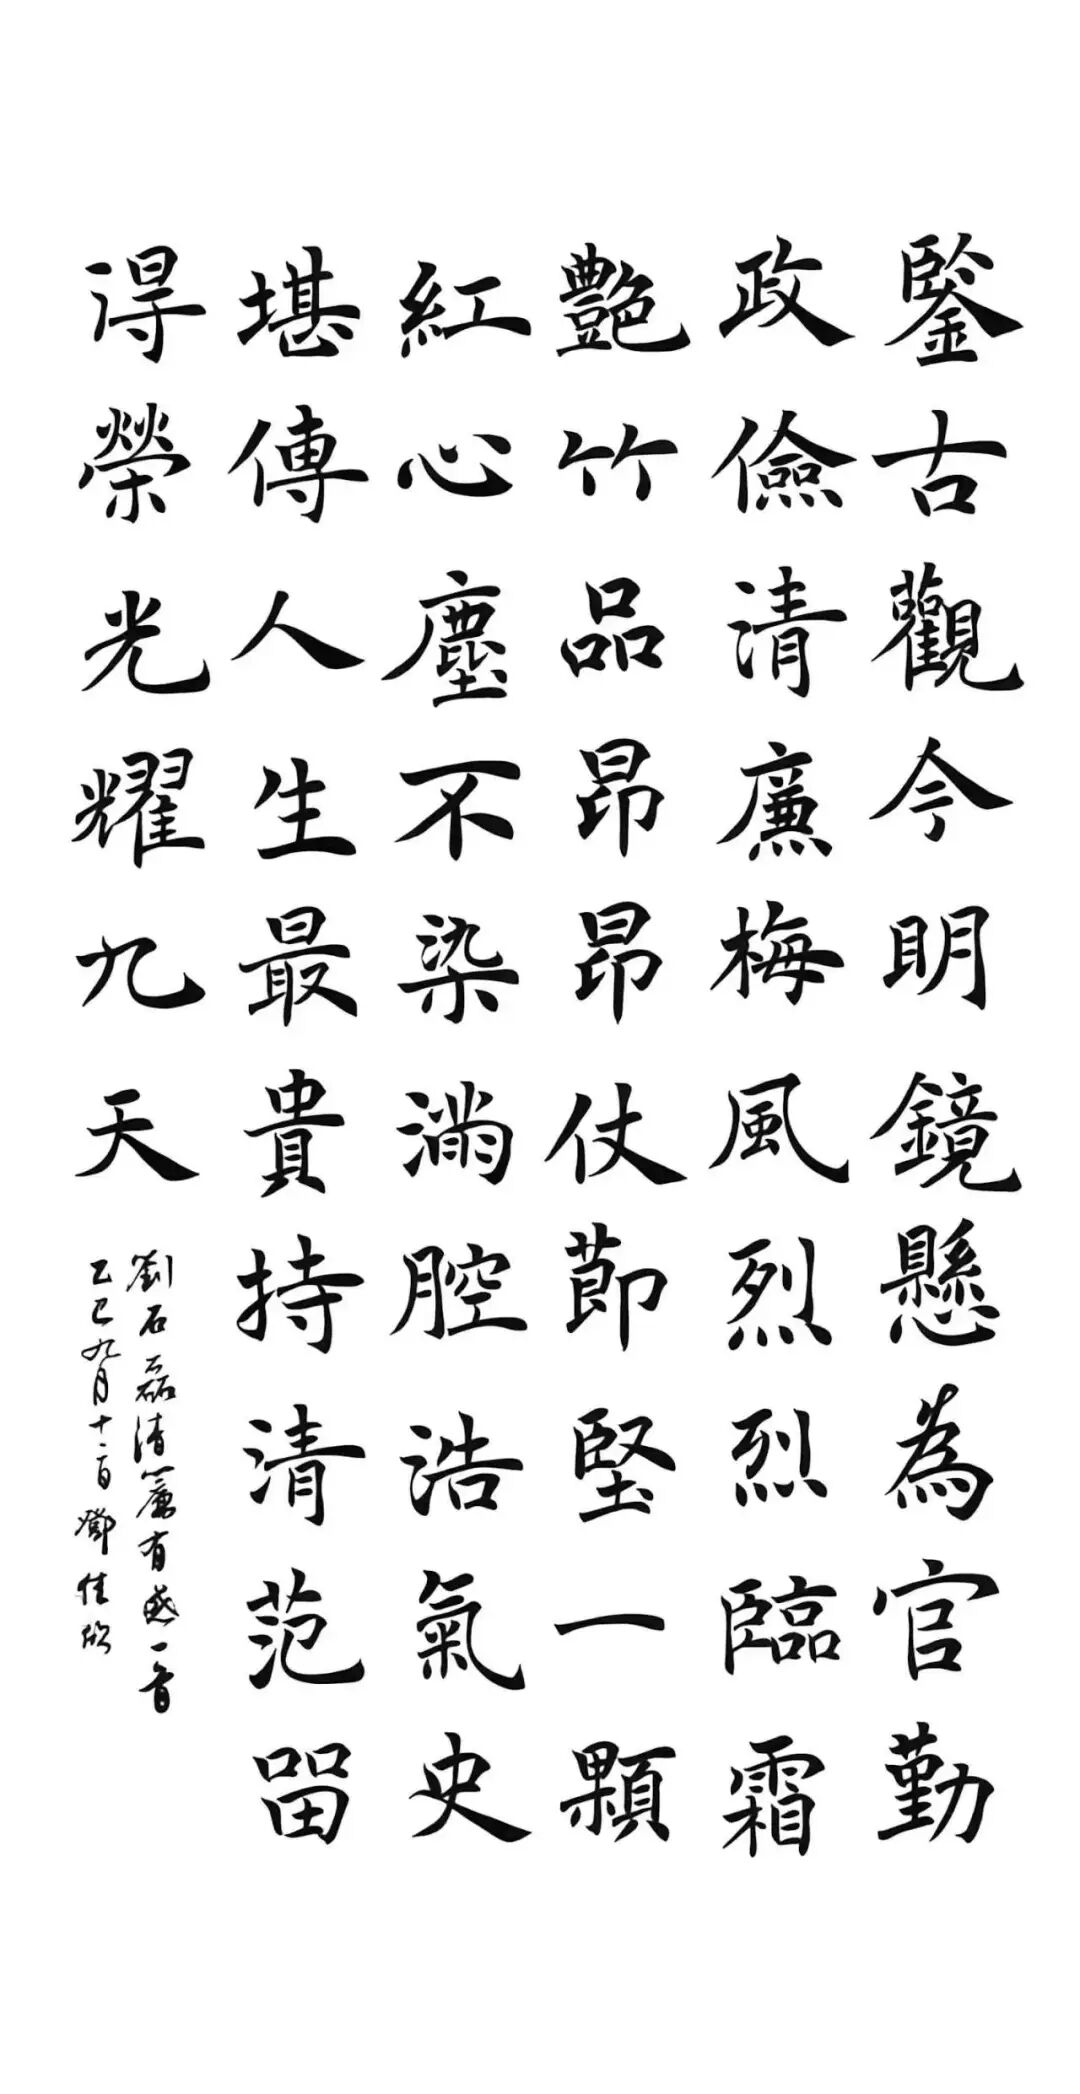 鋻古觀今明鏡懸為官勤
政儉清廉梅風烈烈臨霜
艷竹品昂昂仗節堅一顆
紅心塵不染滿腔浩氣史
堪傳人生最貴持清范留
得榮光耀九天
劉石磊清簾有感一首
乙巳九月十二日鄧佳欣